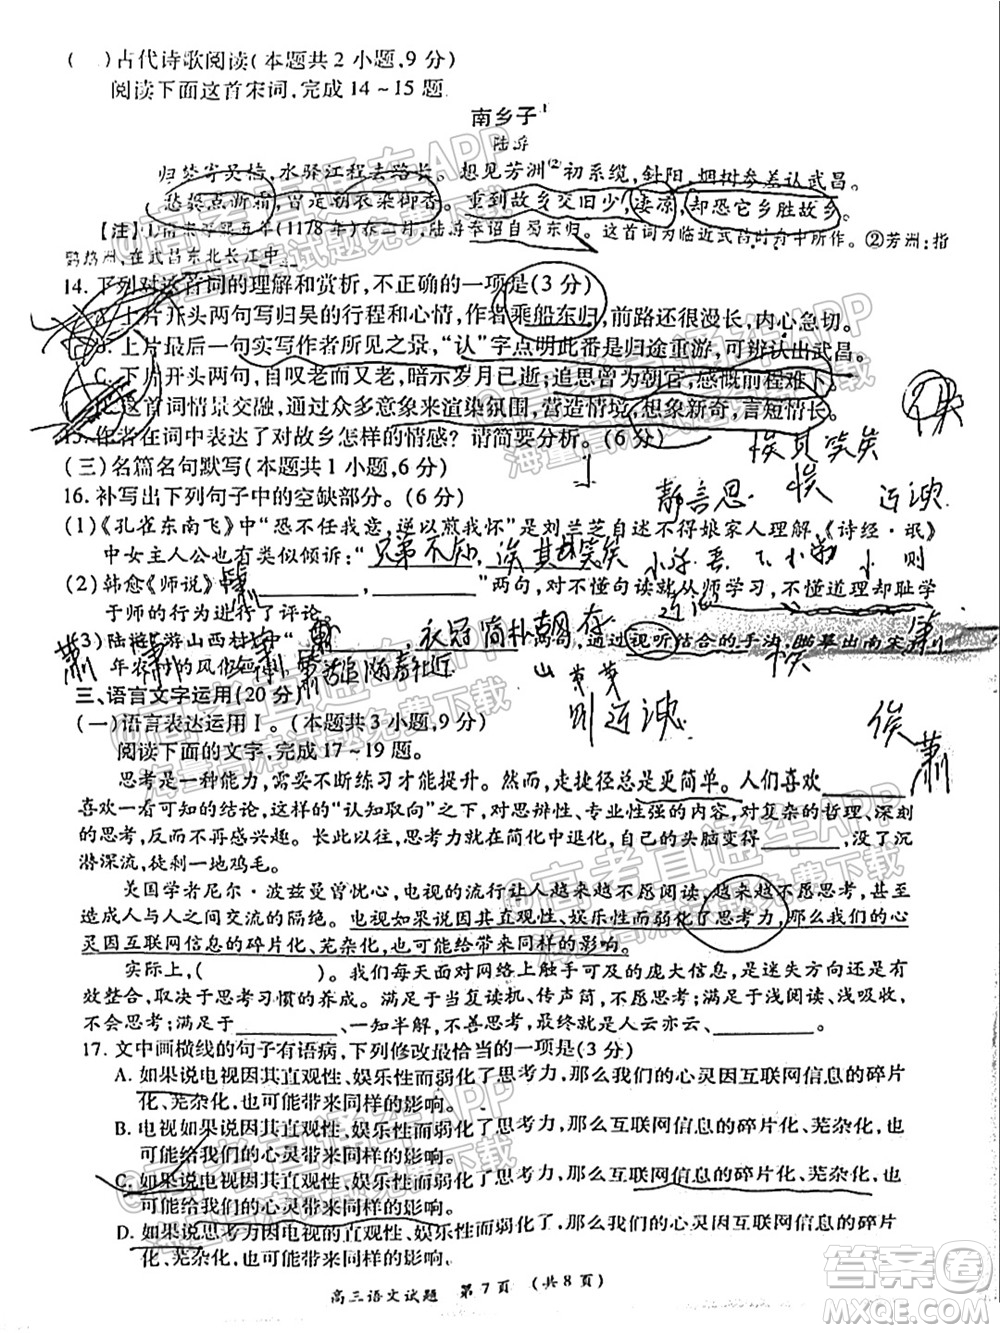 ( )古代诗歌阅读(本题共2小题,9分)
阅读下面这首宋词,完成14~15题
南乡子
陆游
归梦寄吴樯,水驿江程去路长。想见芳洲②初系缆,斜阳,烟树参差认武昌。
愁鬓点新霜,曾是朝衣染御香。重到故乡交旧少,凄凉,却恐它乡胜故乡。
五年(1178年)在二月,陆游奉诏自蜀东归。这首词为临近武昌时舟中所作。②芳洲:指
鹦鹉洲,在武昌东北长江中
14.下列对这首词的理解和赏析,不正确的一项是(3分)
A.上片开头两句写归吴的行程和心情,作者乘船东归,前路还很漫长,内心急切。
B.上片最后一句实写作者所见之景,“认”字点明此番是归途重游,可辨认出武昌。
C.下片开头两句,自叹老而又老,暗示岁月已逝;追思曾为朝官,感慨前程难卜。
这首词情景交融,通过众多意象来渲染氛围,营造情境,想象新奇,言短情长。
15.作者在词中表达了对故乡怎样的情感?请简要分析。(6分)
俟其笑矣
(三)名篇名句默写(本题共1小题,6分)
静言思
16.补写出下列句子中的空缺部分。(6分)
(1)《孔雀东南飞》中“恐不任我意,逆以煎我怀”是刘兰芝自述不得娘家人理解,《诗经·氓》
中女主人公也有类似倾诉:“兄弟不知,
(2)韩愈《师说》 ,”两句,对不懂句读就从师学习,不懂道理却耻学
于师的行为进行了评论
(3)陆游《游山西村》“ 衣冠简朴 ,通过视听结合的手法,描摹出南宋
年农村的风俗 追随春社近
三、语言文字运用(20分)
(一)语言表达运用Ⅰ。(本题共3小题,9分)
阅读下面的文字,完成17~19题。
思考是一种能力,需要不断练习才能提升。然而,走捷径总是更简单。人们喜欢
喜欢一看可知的结论,这样的“认知取向”之下,对思辨性、专业性强的内容,对复杂的、深刻
的思考,反而不再感兴趣。长此以往,思考力就在简化中退化,自己的头脑变得 没了沉
潜深流,徒剩一地鸡毛。
美国学者尼尔·波兹曼曾忧心,电视的流行让人越来越不愿阅读,越来越不愿思考,造
成人与人之间交流的隔绝。电视如果说因其直观性、娱乐性而弱化了思考力,那么我们的心
灵因互联网信息的碎片化、芜杂化,也可能带来同样的影响。
实际上,( )。我们每天面对网络上触手可及的庞大信息,是迷失方向还是有
效整合,取决于思考习惯的养成。满足于当复读机、传声筒,满足于浅阅读、浅吸收,
不会思考;满足于 、一知半解,不愿思考,最终就是人云亦云、 。
17.文中画横线的句子有语病,下列修改最恰当的一项是(3分)
A.如果说电视因其直观性、娱乐性而弱化了思考力,那么我们的心灵因互联网信息的碎片
化、芜杂化,也可能带来同样的影响。
B.电视如果说因其直观性、娱乐性而弱化了思考力,那么互联网信息的碎片化、芜杂化,也
可能给我们的心灵带来同样的影响。
C.如果说电视因其直观性、娱乐性而弱化了思考力,那么互联网信息的碎片化、芜杂化,也
可能给我们的心灵带来同样的影响。
D.如果说思考力因电视的直观性、娱乐性而弱化了,那么我们的心灵因互联网信息的碎片
化、芜杂化,也可能带来同样的影响。
高三语文试题 第7页 (共8页)
@高考直通车APP
海量高清试题免费下载
答案圈
MXQE.COM